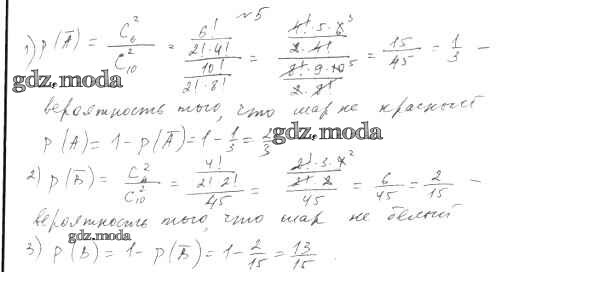 №5
1) P(A̅) = C₆² / C₁₀² = (6! / (2!·4!)) / (10! / (2!·8!)) = (4!·5·6³ / (2·4!)) / (8!·9·10⁵ / (2·8!)) = 15/45 = 1/3 –
gdz.moda
вероятность того, что шар не красный
P(A) = 1 - P(A̅) = 1 - 1/3 = 2/3
gdz.moda
2) P(B̅) = C₄² / C₁₀² = (4! / (2! 2!)) / 45 = (2!·3·4² / (2!·2)) / 45 = 6/45 = 2/15 –
вероятность того, что шар не белый
gdz.moda
3) P(B) = 1 - P(B̅) = 1 - 2/15 = 13/15.